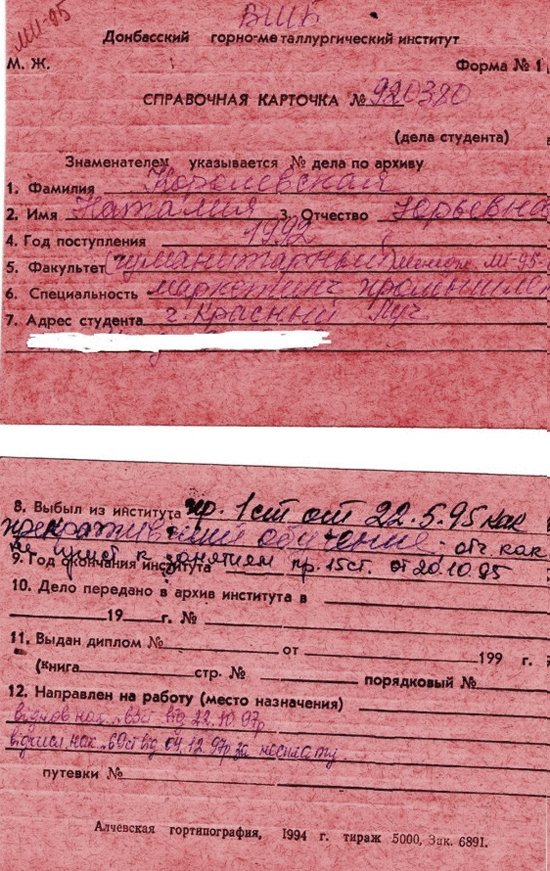 МП-95
ВШБ
Донбасский горно-металлургический институт
М. Ж. Форма № 1
СПРАВОЧНАЯ КАРТОЧКА № 920380
(дела студента)
Знаменателем указывается № дела по архиву
1. Фамилия Королевская
2. Имя Наталия 3. Отчество Юрьевна
4. Год поступления 1992
5. Факультет гуманитарный
6. Специальность маркетинг
7. Адрес студента г. Красный Луч
8. Выбыл из института пр. 1ст от 22.5.95 как
прекративший обучение; отч. как
не прист к занятием пр. 15ст. от 20.10.95
9. Год окончания института
10. Дело передано в архив института в
19 г. №
11. Выдан диплом № от 199 г.
(книга стр. № порядковый №
12. Направлен на работу (место назначения)
віднов нак. від 22.10.97р
нак. від 04.12.97р за несплату
путевки №
Алчевская гортипография, 1994 г. тираж 5000, Зак. 6891.